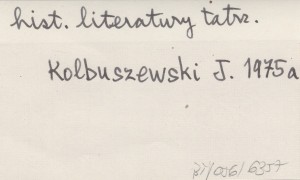 hist. literatury tatrz.
Kolbuszewski J. 1975a